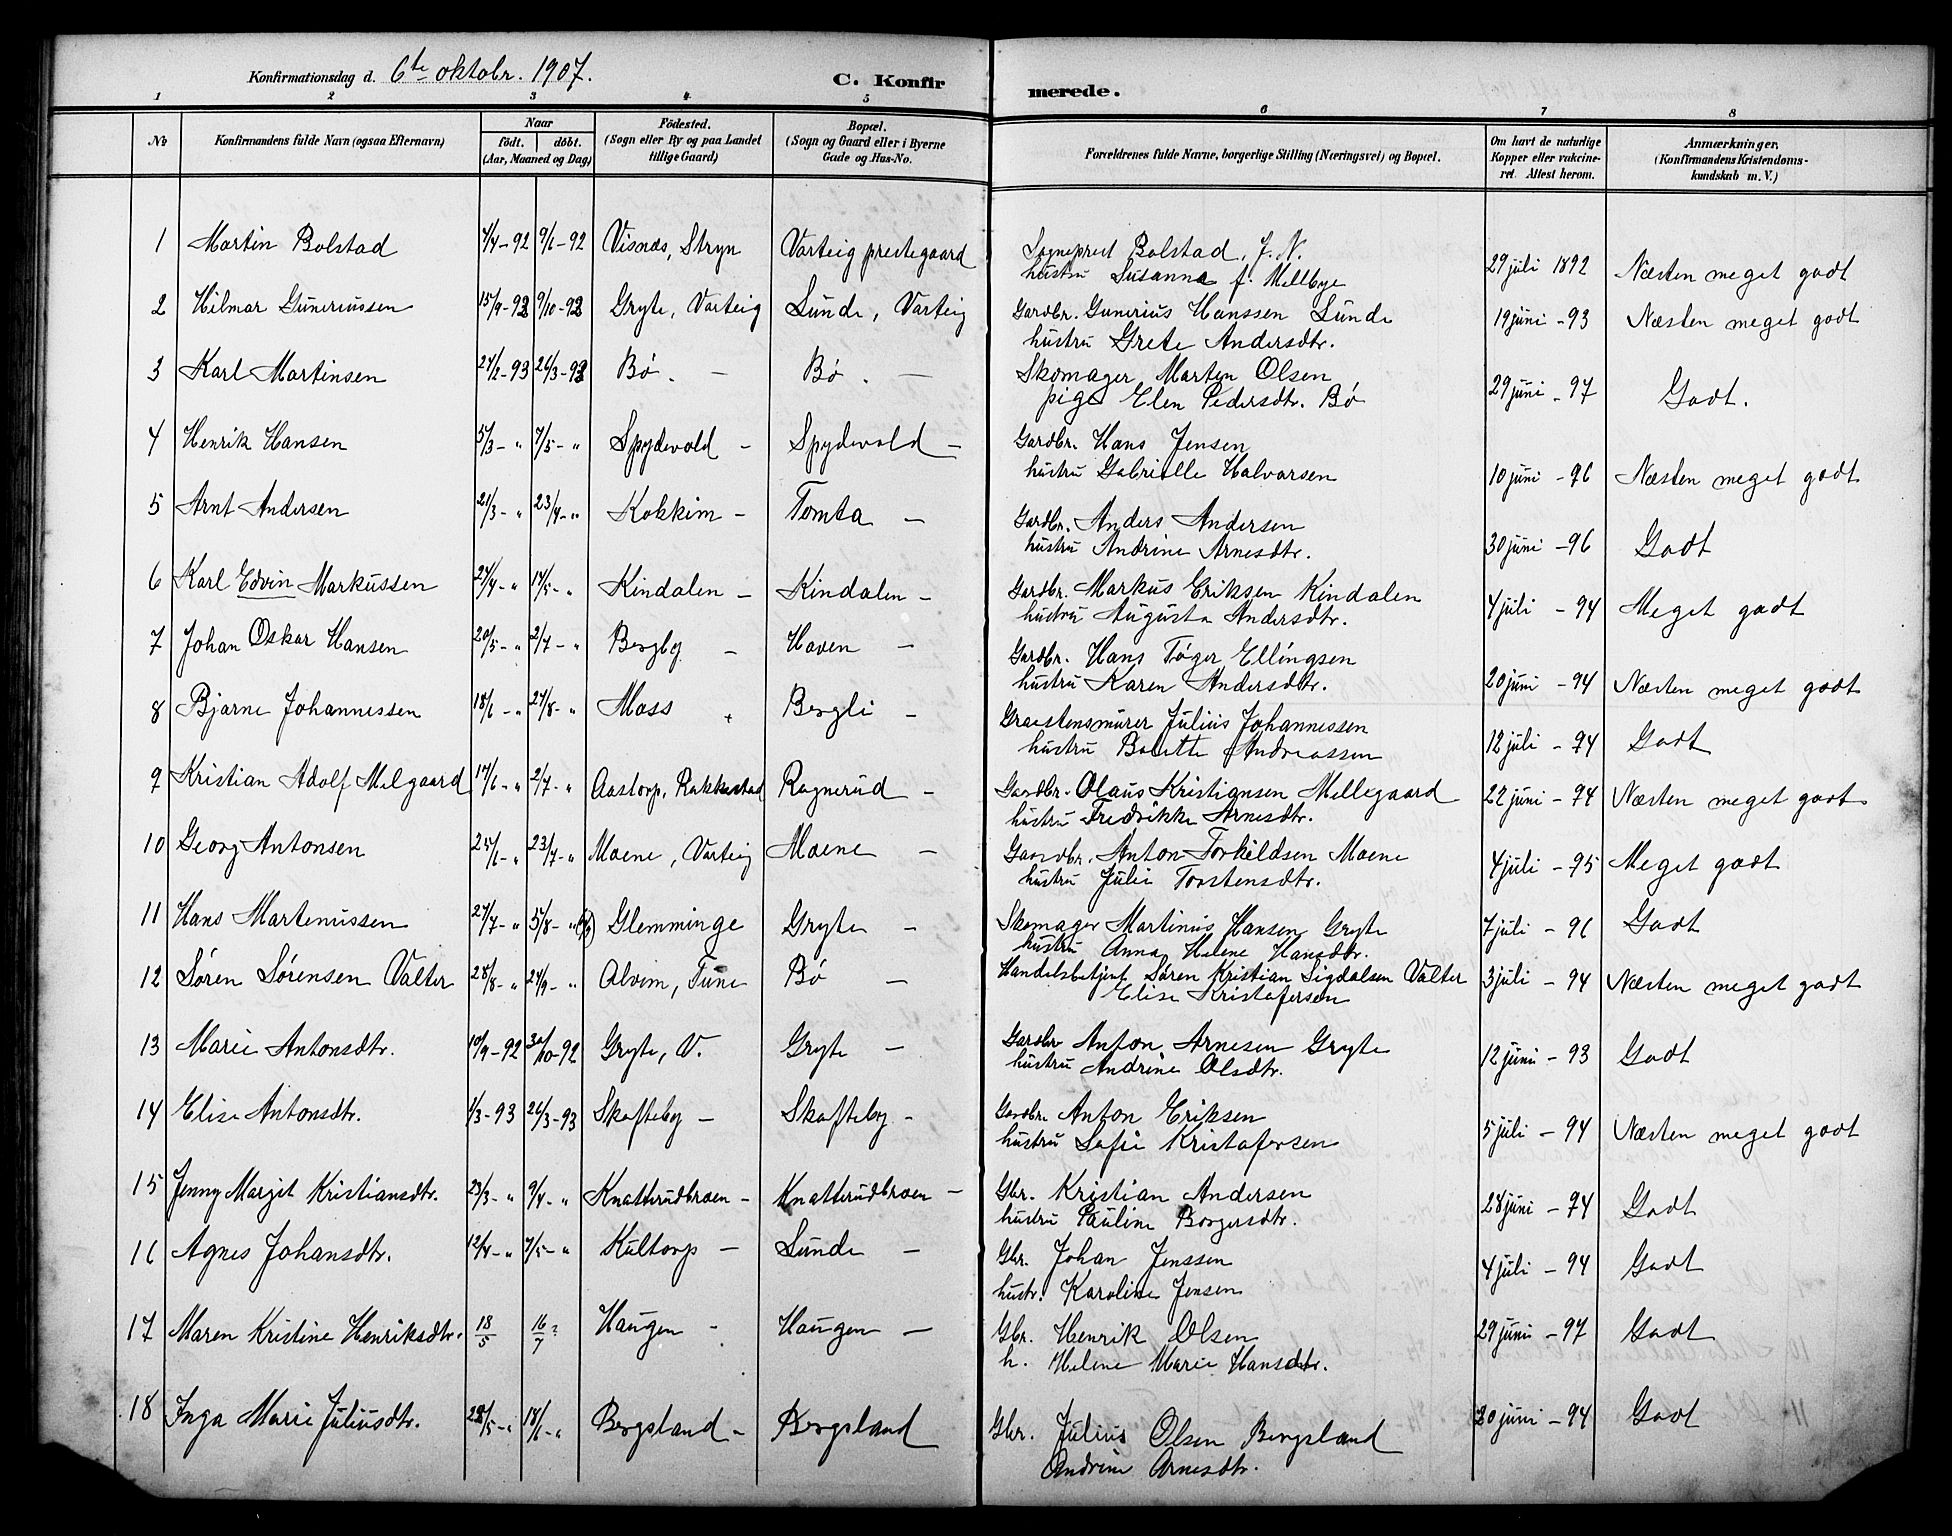 Konfirmationsdag d. 6te oktobr. 1907.
C. Konfirmerede.
1 2 3 4 5 6 7 8
No
Konfirmandens fulde Navn (ogsaa Efternavn)
Naar
født. døbt.
(Aar, Maaned og Dag)
Fødested.
(Sogn eller By og paa Landet
tillige Gaard)
Bopæl.
(Sogn og Gaard eller i Byerne
Gade og Hus-No.
Forældrenes fulde Navne, borgerlige Stilling (Næringsvei) og Bopæl.
Om havt de naturlige
Kopper eller vakcine-
ret. Attest herom.
Anmærkninger.
(Konfirmandens Kristendoms-
kundskab m. V.)
1 Martin Bolstad 7/4-92 9/6-92 Visnæs, Stryn Varteig prestegaard Sogneprest Bolstad, J. N. 29 juli 1892 Næsten meget godt
hustru Susanna f. Mellbye
2 Hilmar Guneriussen 15/9-92 9/10-92 Gryte, Varteig Lunde, Varteig Gardbr. Gunerius Hanssen Lunde 19 juni -93 Næsten meget godt
hustru Grete Andersdtr.
3 Karl Martinsen 27/2-93 26/3-93 Bø. — Bø. — Skomager Marten Olsen 29 juni -97 Godt.
pige Elen Pedersdtr. Bø
4 Henrik Hansen 5/3-" 7/5-" Spydevold — Spydevold — Gardbr. Hans Jensen 10 juni -96 Næsten meget godt
hustru Gabrielle Halvarsen
5 Arnt Andersen 21/3-" 23/4-" Kokkim — Tomta — Gardbr. Anders Andersen 30 juni -96 Godt
hustru Andrine Arnesdtr.
6 Karl Edvin Markussen 24/4-" 14/5-" Kindalen — Kindalen — Gardbr. Markus Eriksen Kindalen 4 juli -94 Meget godt
hustru Augusta Andersdtr.
7 Johan Oskar Hansen 20/5-" 2/7-" Bergby — Haven — Gardbr. Hans Tøger Ellingsen 20 juni -94 Næsten meget godt
hustru Karen Andersdtr.
8 Bjarne Johannessen 18/6-" 27/8-" Moss Bergli — Graastensmurer Julius Johannessen 12 juli -94 Godt
hustru Bolette Andreassen
9 Kristian Adolf Melgaard 17/6-" 2/7-" Aastorp, Rakkestad Ragnerud — Gardbr. Olaus Kristiansen Mellegaard 22 juni -94 Næsten meget godt
hustru Fredrikke Arnesdtr.
10 Georg Antonsen 25/6-" 23/7-" Moene, Varteig Moene — Gaardbr. Anton Torkildsen Moene 4 juli -95 Meget godt
hustru Julie Torstensdtr.
11 Hans Martenussen 27/7-" 5/8-" Glemminge Gryte — Skomager Martinus Hansen Gryte 7 juli -96 Godt
hustru Anna Helene Hansdtr.
12 Søren Sørensen Valter 28/8-" 24/9-" Alvim, Tune Bø — Handelsbetjent Søren Kristian Sigdalsen Valter 3 juli -94 Næsten meget godt
Elise Kristofersen
13 Marie Antonsdtr. 10/9-92 30/10-92 Gryte, V. Gryte — Gardbr Anton Arnesen Gryte 12 juni -93 Godt
hustru Andrine Olsdtr.
14 Elise Antonsdtr. 1/3-93 26/3-93 Skofteby — Skofteby — Gardbr. Anton Eriksen 5 juli -94 Næsten meget godt
hustru Sofie Kristofersen
15 Jenny Margit Kristiansdtr. 23/3-" 9/4-" Knatterudbraen — Knatterudbraen — Gbr. Kristian Andersen 28 juni -94 Godt
hustru Pauline Borgersdtr.
16 Agnes Johansdtr. 12/4-" 7/5-" Kultorp — Lunde — Gbr. Johan Jenssen 4 juli -94 Godt
hustr. Karoline Jensen
17 Maren Kristine Henriksdtr. 18/5 16/7 " Haugen — Haugen — Gbr. Henrik Olsen 29 juni -97 Godt
h. Helene Marie Hansdtr.
18 Inga Marie Juliusdtr. 28/5-" 18/6-" Bergsland — Bergsland Gbr. Julius Olsen Bergsland 20 juni -94 Godt
Andrine Arnesdtr.